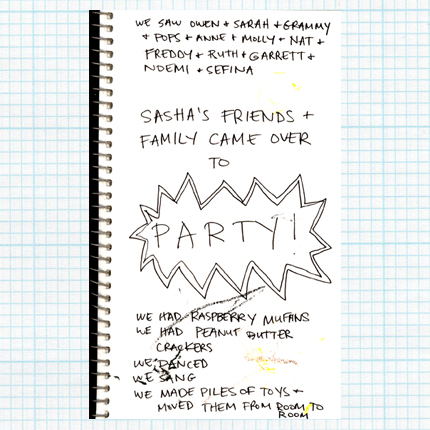 WE SAW OWEN + SARAH + GRAMMY
+ POPS + ANNE + MOLLY + NAT +
FREDDY + RUTH + GARRETT +
NOEMI + SEFINA
SASHA'S FRIENDS +
FAMILY CAME OVER
TO
PARTY!
WE HAD RASPBERRY MUFFINS
WE HAD PEANUT BUTTER
CRACKERS
WE DANCED
WE SANG
WE MADE PILES OF TOYS +
MOVED THEM FROM ROOM TO
ROOM